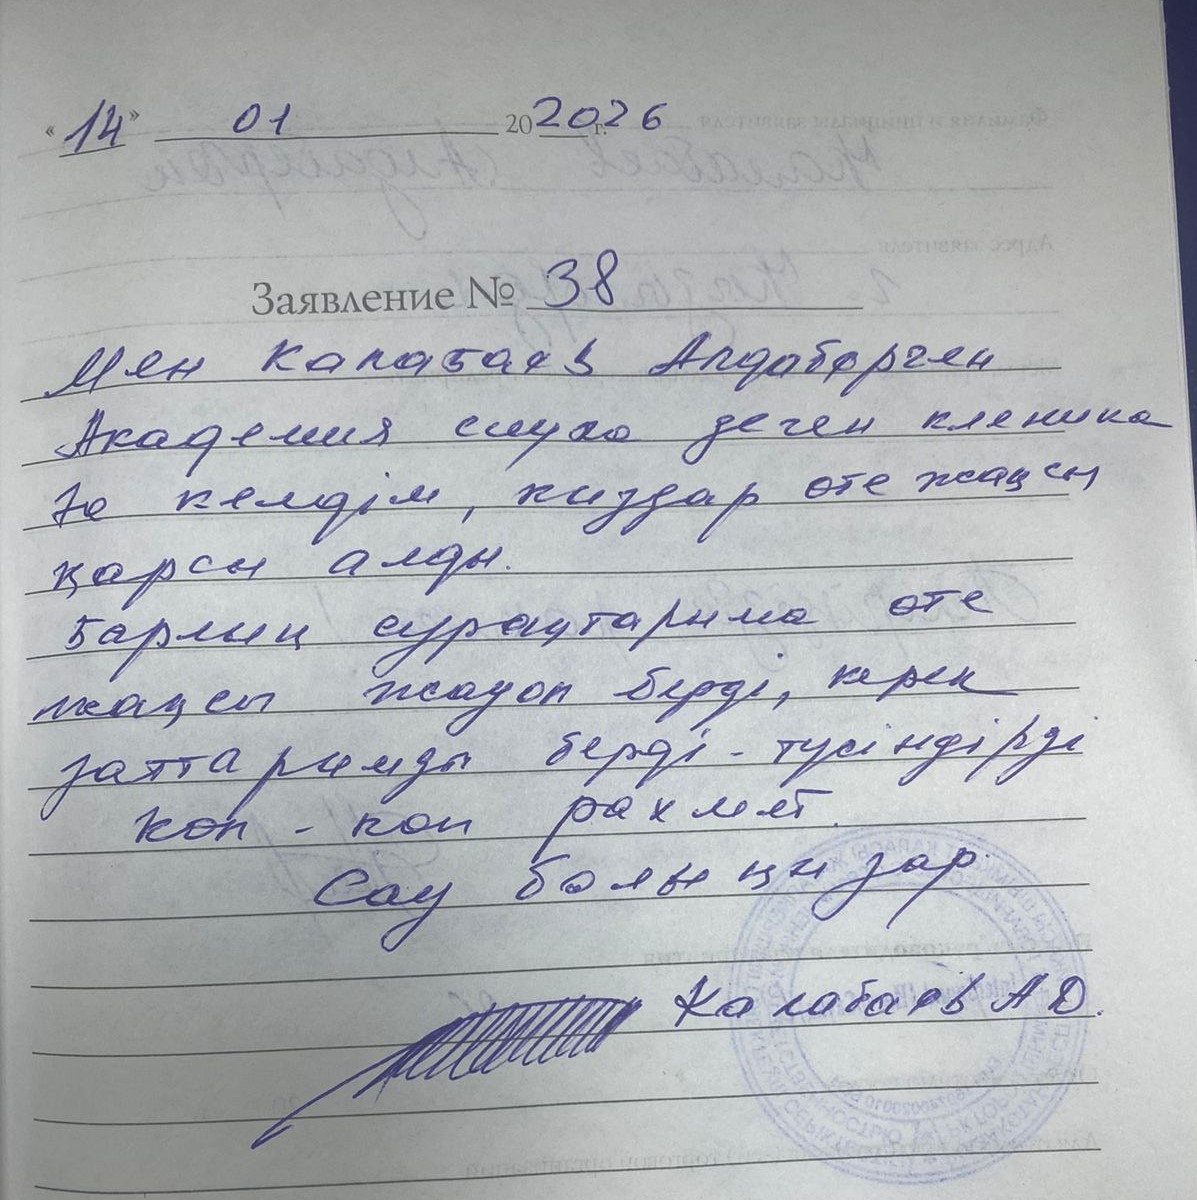 «14» 01 202026 г.
Заявление № 38
Мен Калабаев Алдаберген
Академия слуха деген клиника
га келдім, киздар оте жақсы
қарсы алды.
Барлиқ сурақтарима оте
жақсы жауоп берді, керек
заттаримды берді - тусіндірді
коп - коп рахмет.
Сау болыңизар.
Калабаев А Д.